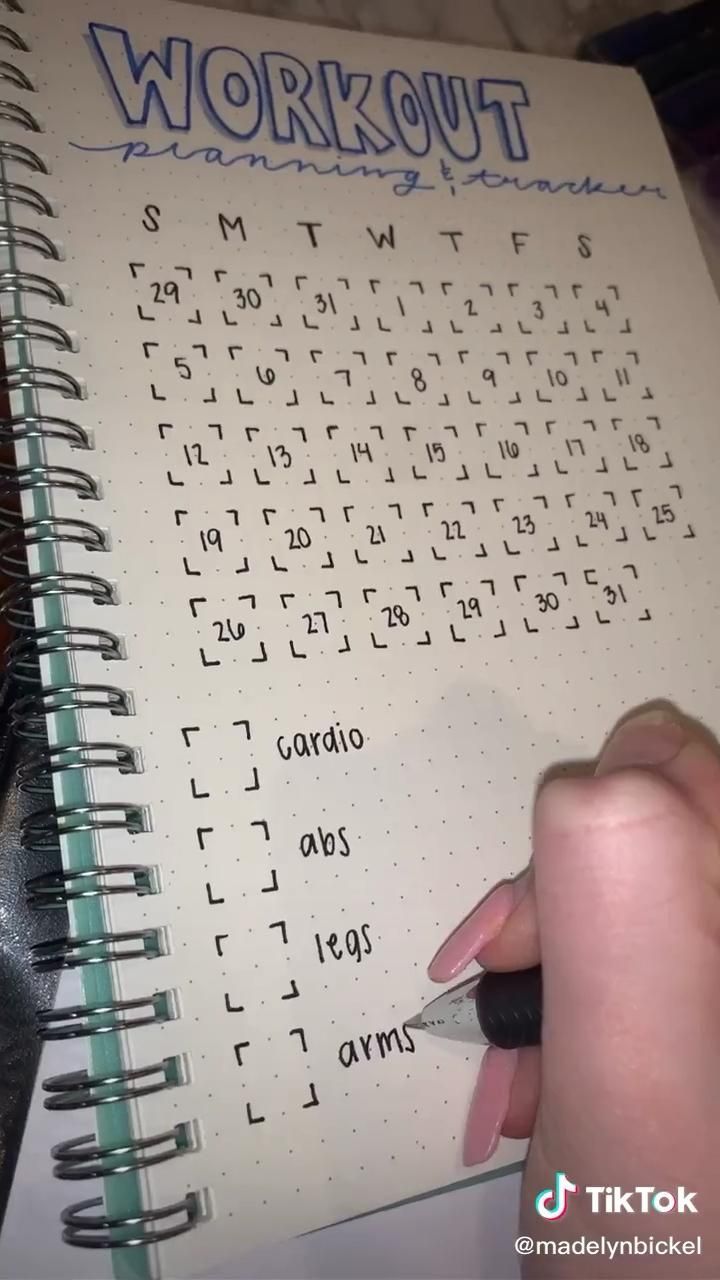 WORKOUT
planning & tracker
S M T W T F S
29 30 31 1 2 3 4
5 6 7 8 9 10 11
12 13 14 15 16 17 18
19 20 21 22 23 24 25
26 27 28 29 30 31
cardio
abs
legs
arms
TikTok
@madelynbickel